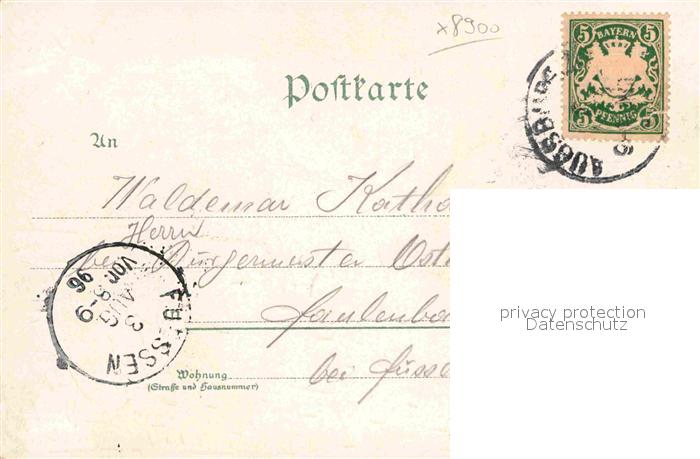 x8900
5 BAYERN 5
5 PFENNIG 5
AUGSBURG
Postkarte
An
Waldemar Kath
Herrn
bei Bürgermeister Ost
Faulenba
bei Füsse
FUESSEN
3 AUG
Vor. 8-9
96
Wohnung
(Straße und Hausnummer)
privacy protection
Datenschutz